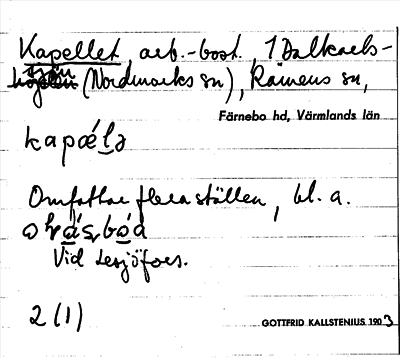 Kapellet arb.-bost. 1 Dalkarls-
sjön (Nordmarks sn), Rämens sn,
Färnebo hd, Värmlands län
kapǽlə
Omfattar flera ställen, bl. a.
Vid Lesjöfors.
2 (1)
GOTTFRID KALLSTENIUS 1903